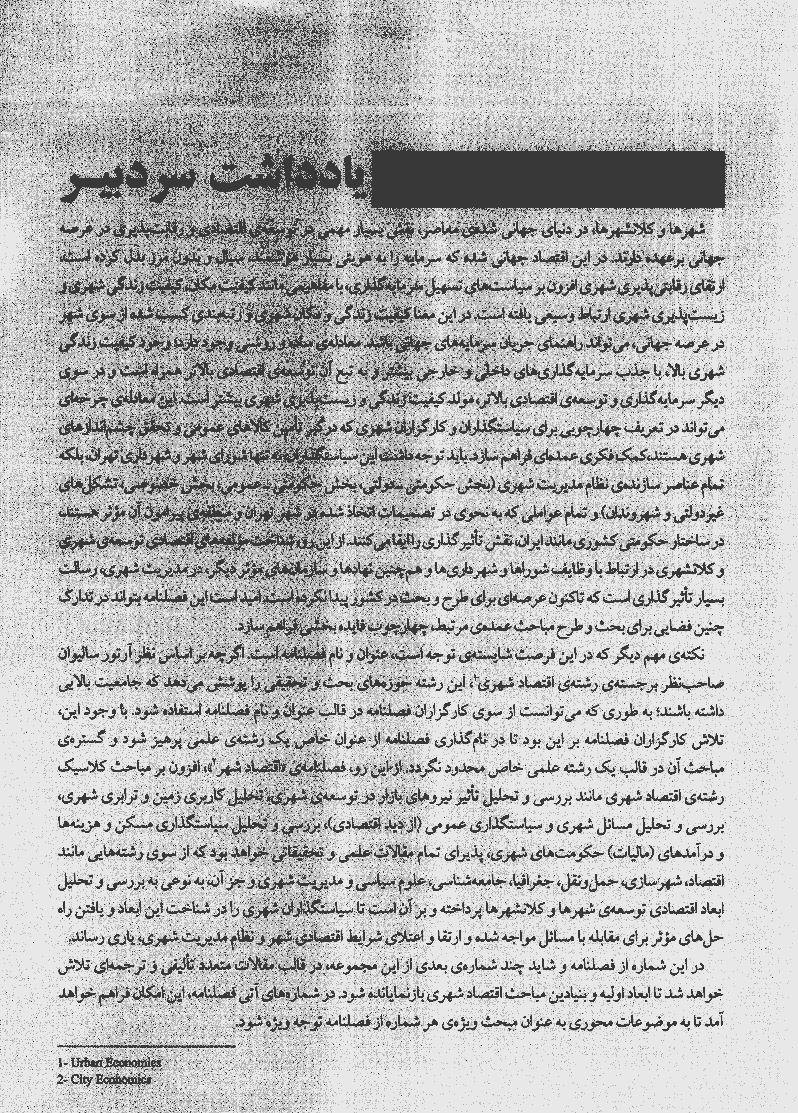 یادداشت سردبیر
شهرها و کلانشهرها، در دنیای جهانی شده‌ی معاصر، نقش بسیار مهمی در توسعه‌ی اقتصادی و رقابت‌پذیری در عرصه
جهانی برعهده دارند. در این اقتصاد جهانی شده که سرمایه را به هویتی بسیار هوشمند، سیال و بدون مرز بدل کرده است،
ارتقای رقابتی‌پذیری شهری افزون بر سیاست‌های تسهیل سرمایه‌گذاری، با مفاهیمی مانند کیفیت مکان، کیفیت زندگی شهری و
زیست‌پذیری شهری ارتباط وسیعی یافته است. در این معنا کیفیت زندگی و مکان شهری و رتبه‌بندی کسب شده از سوی شهر
در عرصه جهانی، می‌تواند راهنمای جریان سرمایه‌های جهانی باشد. معادله‌ی ساده و روشنی وجود دارد: وجود کیفیت زندگی
شهری بالا، با جذب سرمایه‌گذاری‌های داخلی و خارجی بیشتر و به تبع آن توسعه‌ی اقتصادی بالاتر همراه است و در سوی
دیگر سرمایه‌گذاری و توسعه‌ی اقتصادی بالاتر، مولد کیفیت زندگی و زیست‌پذیری شهری بیشتر است. این معادله‌ی چرخه‌ای
می‌تواند در تعریف چهارچوبی برای سیاستگذاران و کارگزاران شهری که درگیر تأمین کالاهای عمومی و تحقق چشم‌اندازهای
شهری هستند، کمک فکری عمده‌ای فراهم سازد. باید توجه داشت این سیاستگذاران، نه تنها شورای شهر و شهرداری تهران، بلکه
تمام عناصر سازنده‌ی نظام مدیریت شهری (بخش حکومتی ـ دولتی، بخش حکومتی ـ عمومی، بخش خصوصی، تشکل‌های
غیردولتی و شهروندان) و تمام عواملی که به نحوی در تصمیمات اتخاذ شده در شهر تهران و منطقه‌ی پیرامون آن مؤثر هستند،
در ساختار حکومتی کشوری مانند ایران، نقش تأثیر گذاری را ایفا می‌کنند. از این رو، شناخت مؤلفه‌های اقتصادی توسعه‌ی شهری
و کلانشهری در ارتباط با وظایف شوراها و شهرداری‌ها و هم‌چنین نهادها و سازمان‌های مؤثر دیگر، در مدیریت شهری، رسالت
بسیار تأثیر گذاری است که تاکنون عرصه‌ای برای طرح و بحث در کشور پیدا نکرده است. امید است این فصلنامه بتواند در تدارک
چنین فضایی برای بحث و طرح مباحث عمده‌ی مرتبط، چهارچوب فایده بخشی فراهم سازد.
نکته‌ی مهم دیگر که در این فرصت شایسته‌ی توجه است، عنوان و نام فصلنامه است. اگرچه بر اساس نظر آرتور سالیوان
صاحب‌نظر برجسته‌ی رشته‌ی اقتصاد شهری۱، این رشته حوزه‌های بحث و تحقیقی را پوشش می‌دهد که جامعیت بالایی
داشته باشند؛ به طوری که می‌توانست از سوی کارگزاران فصلنامه در قالب عنوان و نام فصلنامه استفاده شود. با وجود این،
تلاش کارگزاران فصلنامه بر این بود تا در نام‌گذاری فصلنامه از عنوان خاص یک رشته‌ی علمی پرهیز شود و گستره‌ی
مباحث آن در قالب یک رشته علمی خاص محدود نگردد. از این رو، فصلنامه‌ی «اقتصاد شهر۲»، افزون بر مباحث کلاسیک
رشته‌ی اقتصاد شهری مانند بررسی و تحلیل تأثیر نیروهای بازار در توسعه‌ی شهری، تحلیل کاربری زمین و ترابری شهری،
بررسی و تحلیل مسائل شهری و سیاستگذاری عمومی (از دید اقتصادی)، بررسی و تحلیل سیاستگذاری مسکن و هزینه‌ها
و درآمدهای (مالیات) حکومت‌های شهری، پذیرای تمام مقالات علمی و تحقیقاتی خواهد بود که از سوی رشته‌هایی مانند
اقتصاد، شهرسازی، حمل‌ونقل، جغرافیا، جامعه‌شناسی، علوم سیاسی و مدیریت شهری و جز آن، به نوعی به بررسی و تحلیل
ابعاد اقتصادی توسعه‌ی شهرها و کلانشهرها پرداخته و بر آن است تا سیاستگذاران شهری را در شناخت این ابعاد و یافتن راه
حل‌های مؤثر برای مقابله با مسائل مواجه شده و ارتقا و اعتلای شرایط اقتصادی شهر و نظام مدیریت شهری، یاری رساند.
در این شماره از فصلنامه و شاید چند شماره‌ی بعدی از این مجموعه، در قالب مقالات متعدد تألیفی و ترجمه‌ای تلاش
خواهد شد تا ابعاد اولیه و بنیادین مباحث اقتصاد شهری بازنمایانده شود. در شماره‌های آتی فصلنامه، این امکان فراهم خواهد
آمد تا به موضوعات محوری به عنوان مبحث ویژه‌ی هر شماره از فصلنامه توجه ویژه شود.
1- Urban Economics
2- City Economics